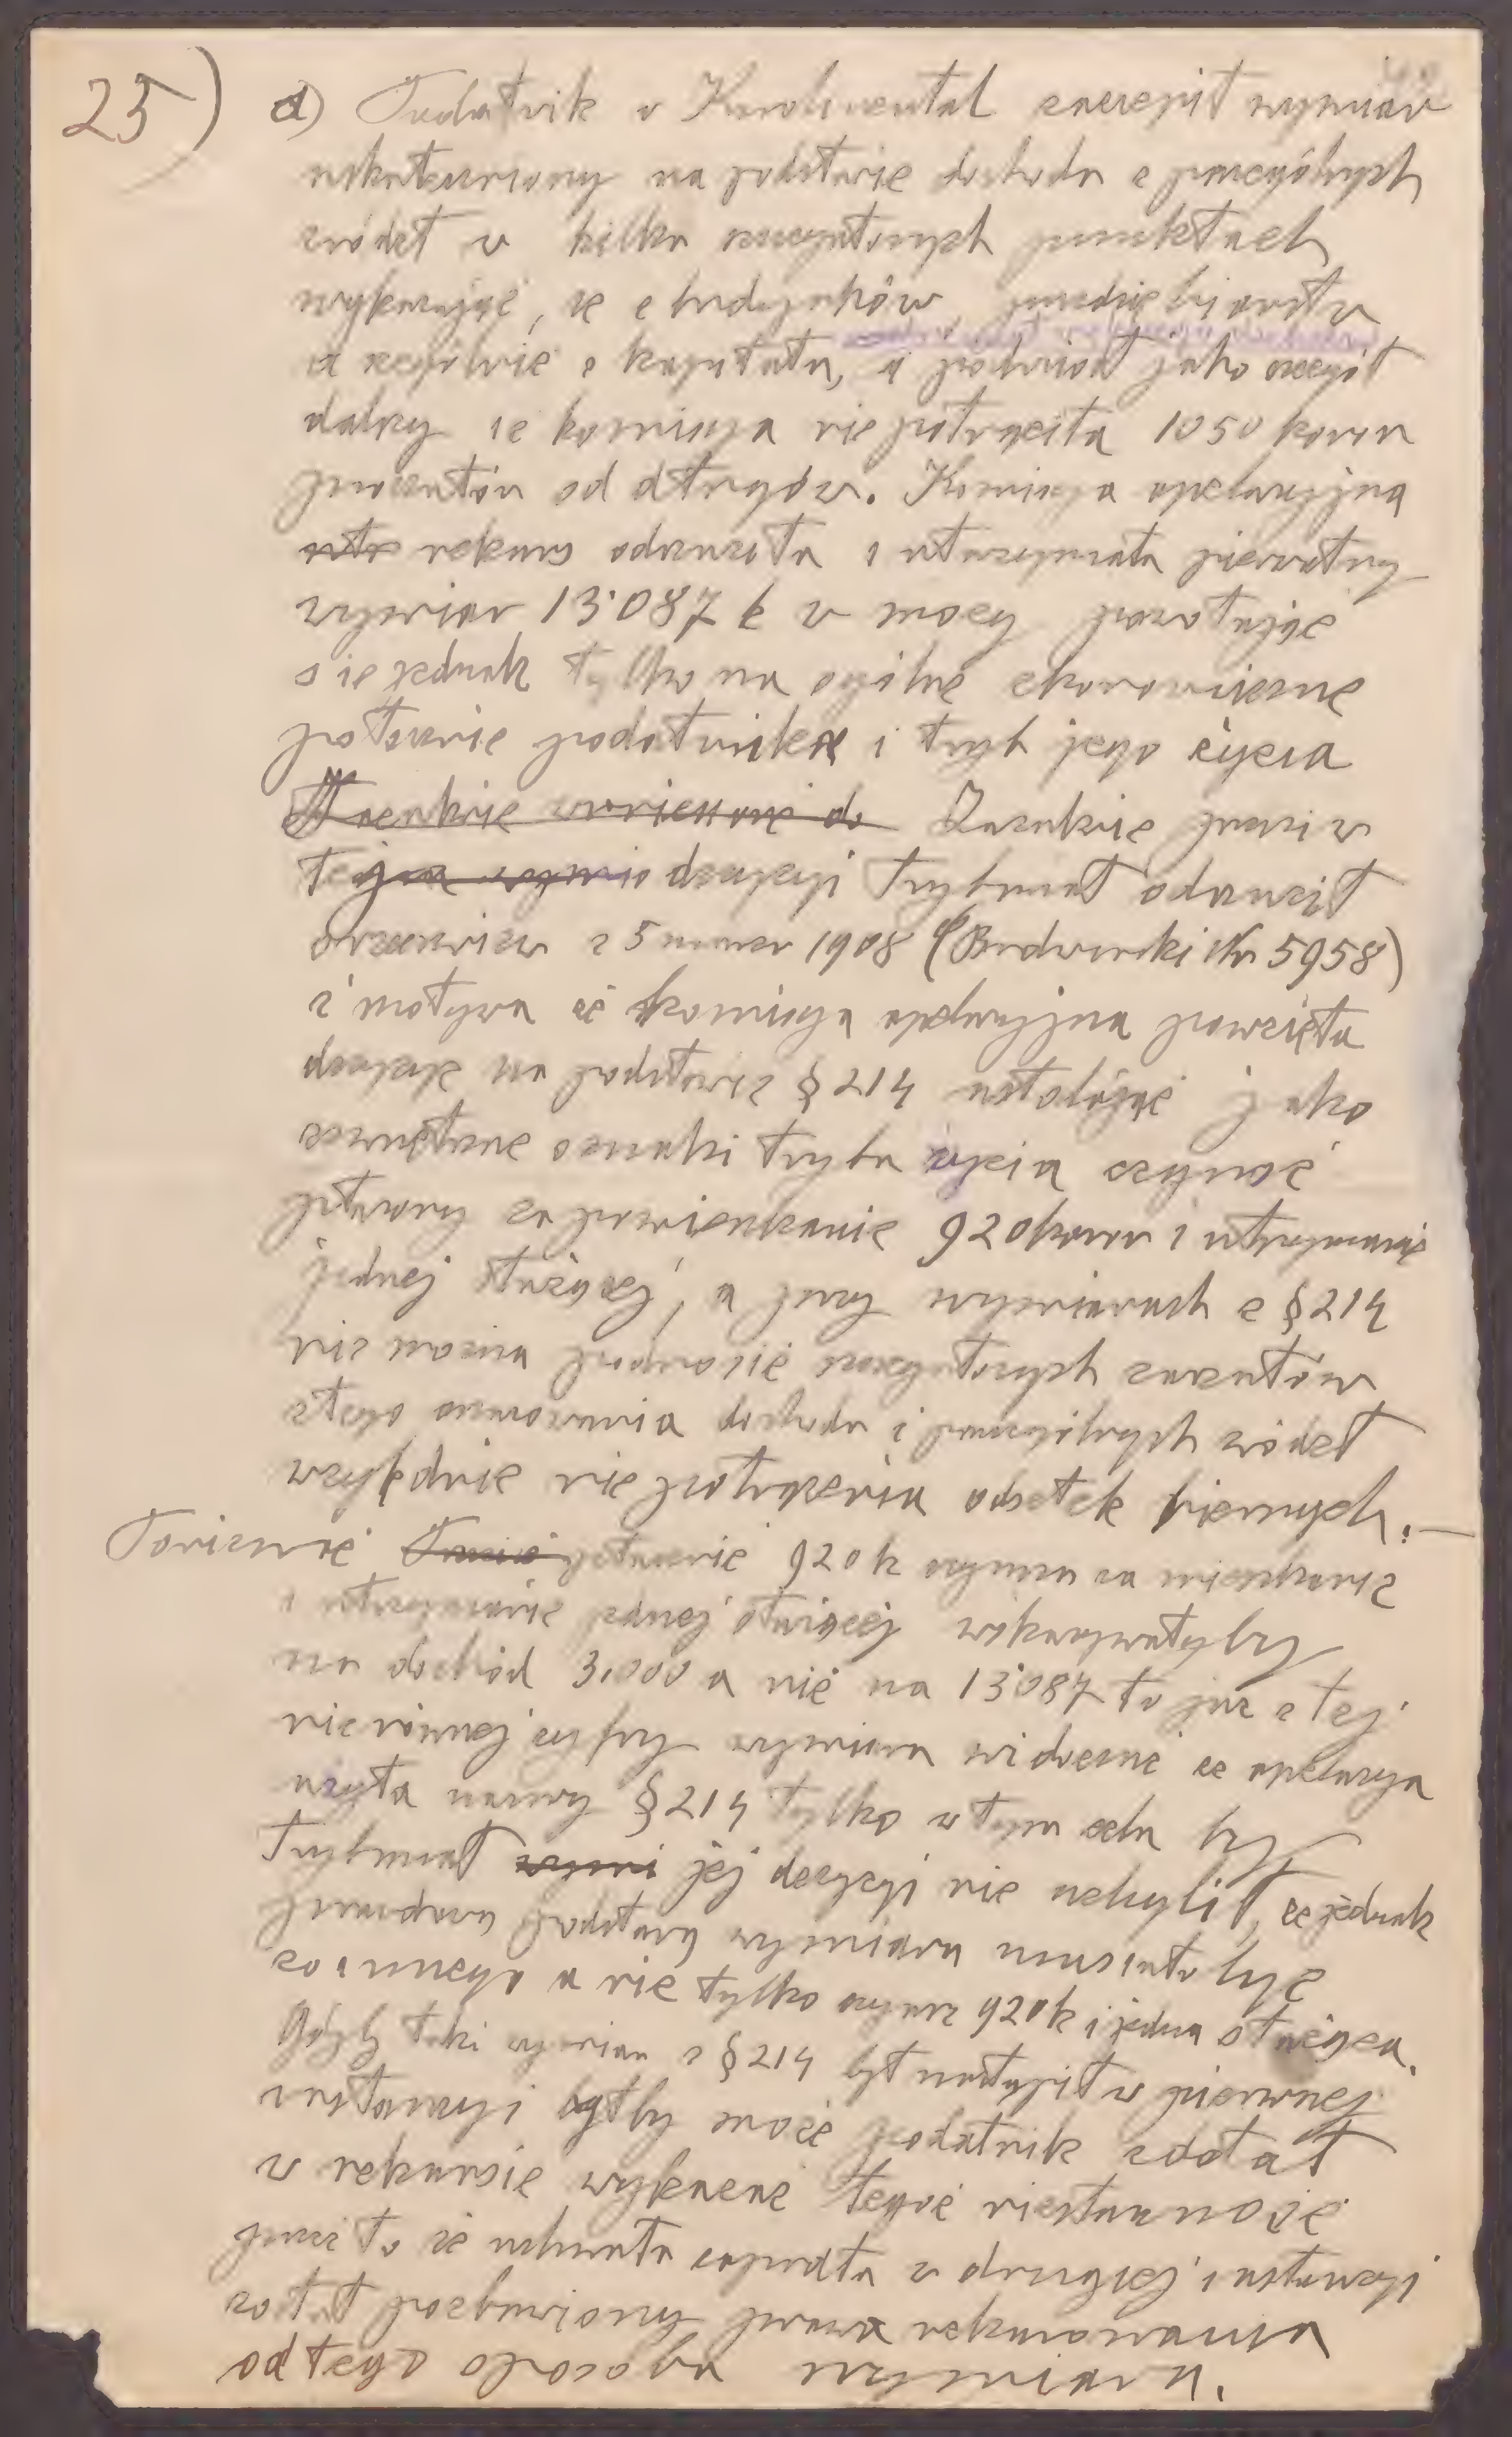 25) d) Podatnik w Karolinental zaczepił wymiar
uskuteczniony na podstawie dochodu z poszczególnych
źródeł w kilku punktach
wykazując, że z budynków, przedsiębiorstw
a szczególnie z kapitału, a podniósł jako
dalszy że komisya nie potrąciła 1050 koron
procentów od długów. Komisya apelacyjna
rekurs odrzuciła i utrzymała pierwotny
wymiar 13·087 k w mocy powołując
się jednak tylko na ogólne ekonomiczne
położenie podatnika i tryb jego życia
Zażalenie przeciw
tej decyzyi Trybunał odrzucił
orzeczeniem z 5 marca 1908 (Budwiński Nr 5958)
z motywu że komisya apelacyjna powzięła
decyzye na podstawie § 214 ustalając jako
zewnętrzne oznaki trybu życia czynsz
płacony za pomieszkanie 920 koron i utrzymanie
jednej służącej, a przy wymiarach z § 214
nie można podnosić zarzutów
z tego oszacowania dochodu z poszczególnych źródeł
względnie nie potrącenia odsetek biernych.—
Ponieważ płacenie 920 k czynszu za mieszkanie
i utrzymanie jednej służącej wskazywałyby
na dochód 3.000 a nie na 13·087 to już z tej
nierównej cyfry wymiaru widoczne że apelacya
użyła nazwy § 214 tylko w tym celu by
Trybunał jej decyzyi nie uchylił, że jednak
prawdziwą podstawą wymiaru musiało być
co innego a nie tylko czynsz 920 k i jedna służąca.
Gdyby taki wymiar z § 214 był nastąpił w pierwszej
instancyi byłby może podatnik zdołał
w rekursie wykazać tegoż niesłuszność
przez to że uchwała zapadła w drugiej instancyi
został pozbawiony prawa rekurowania
od tego sposobu wymiaru.